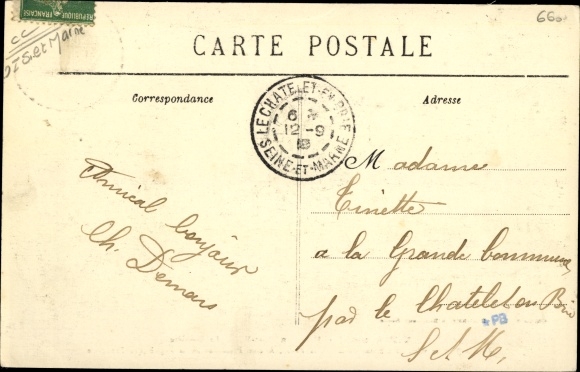 RÉPUBLIQUE FRANÇAISE
CC
S. et Marne
660
CARTE POSTALE
Correspondance
Adresse
LE CHATELET-EN-BRIE
6
12-9
SEINE-ET-MARNE
Amical bonjour
Ch.
Madame
Tinette
a la Grande Commune
par le Chatelet en Brie
S & M,
PB